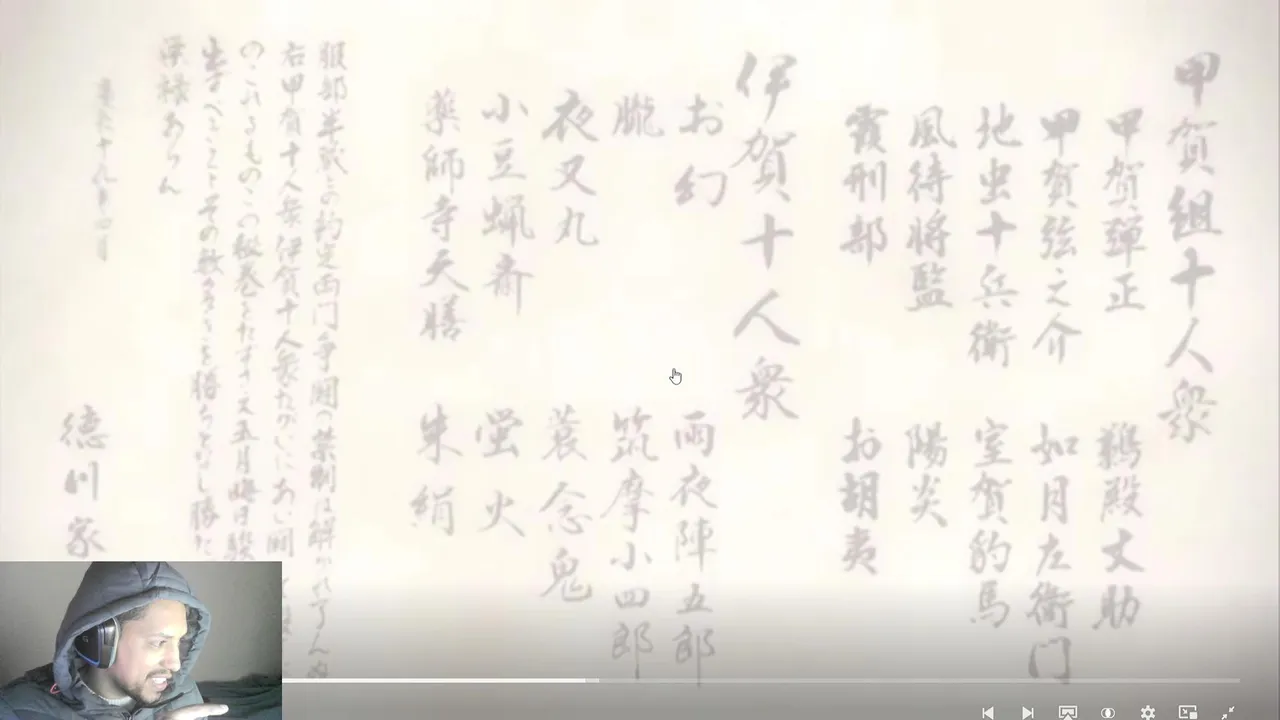 甲賀組十人衆
甲賀弾正
甲賀弦之介
地虫十兵衛
風待将監
霞刑部
鵜殿丈助
如月左衛門
室賀豹馬
陽炎
お胡夷
伊賀十人衆
お幻
朧
夜叉丸
小豆蝋斎
薬師寺天膳
雨夜陣五郎
筑摩小四郎
蓑念鬼
蛍火
朱絹
服部半蔵との約定両門争闘の禁制は解かれ了んぬ
右甲賀十人衆伊賀十人衆たがいにあい闘
のこれるものこの秘巻をたずさえ五月晦日駿
その数多きを勝
栄禄あらん
徳川家